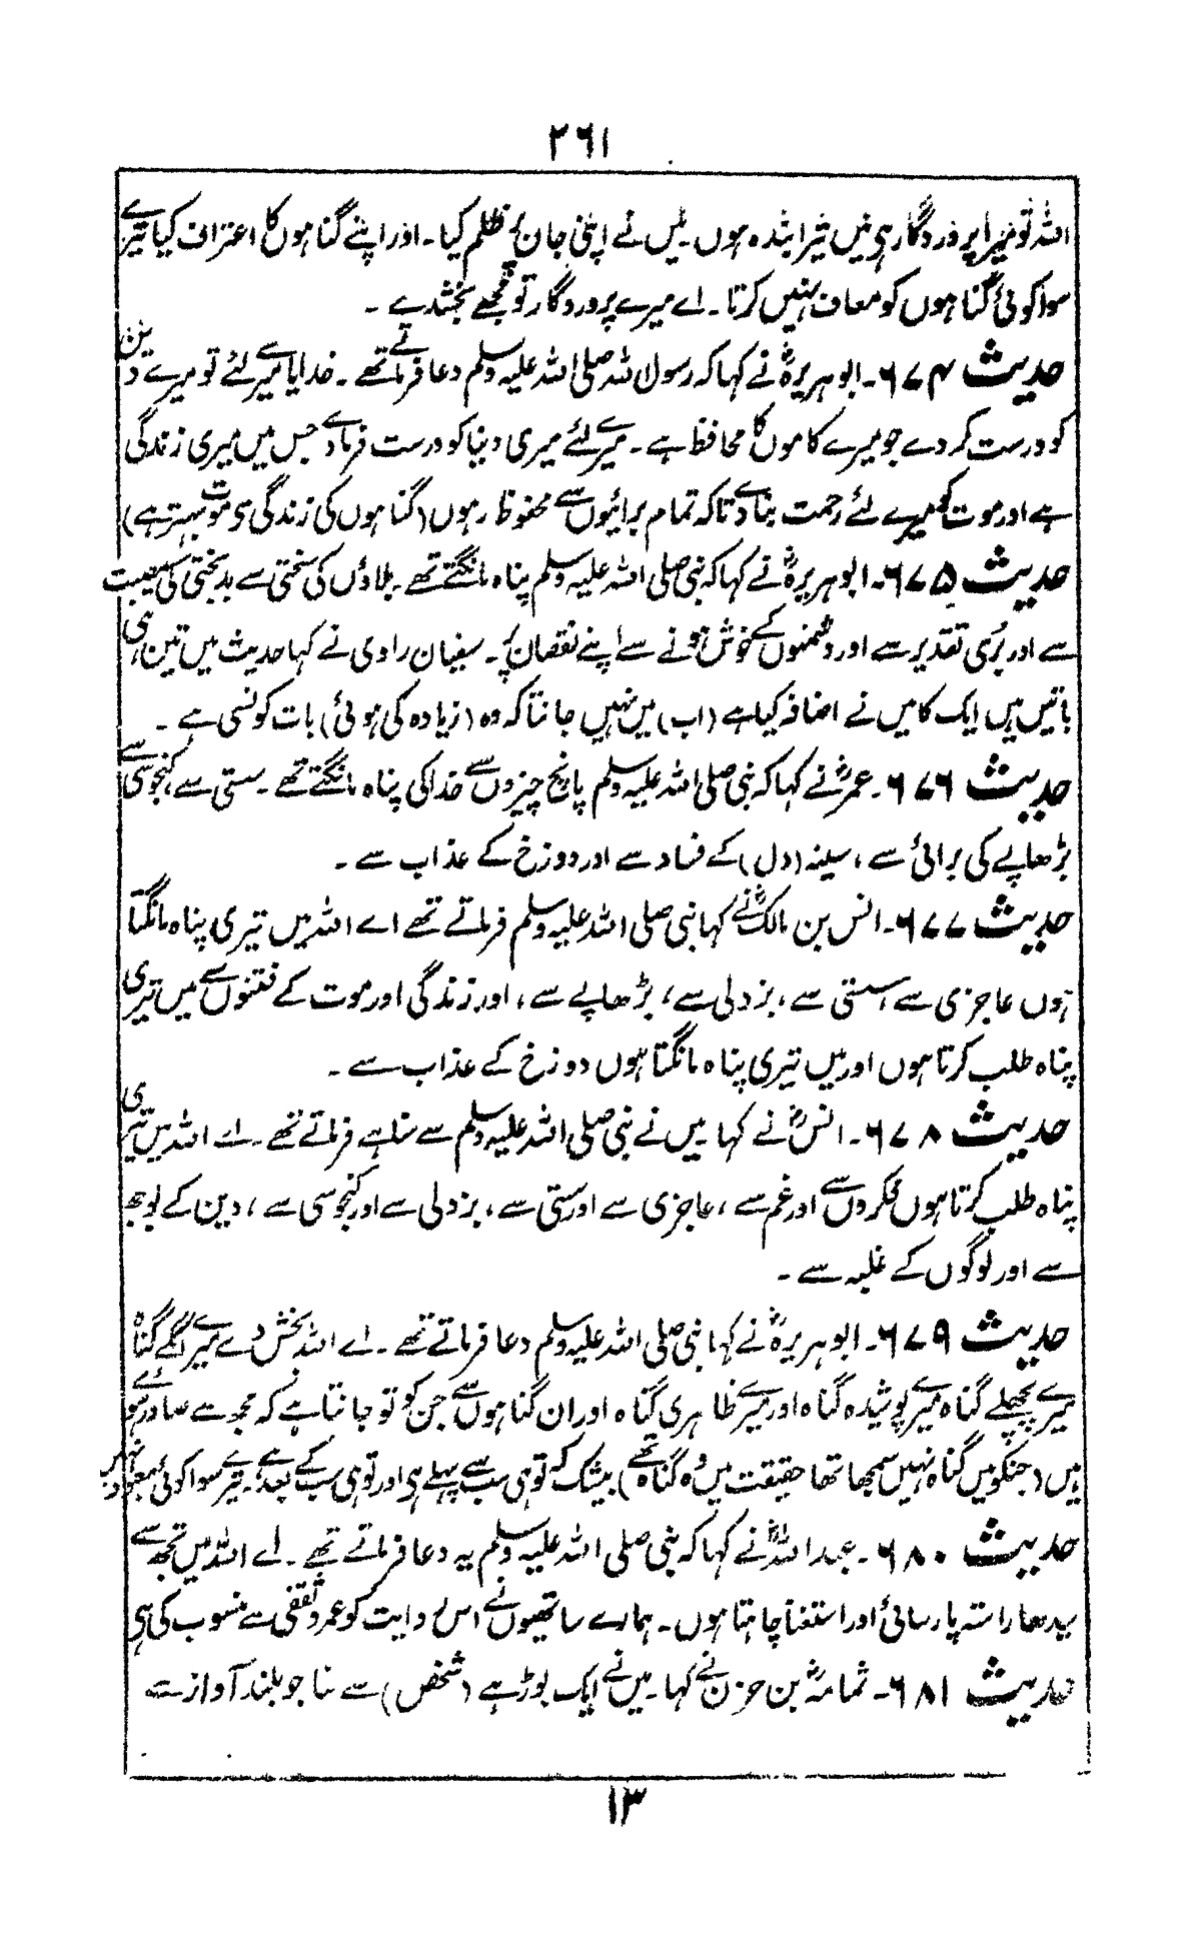 ۲۶۱
اللہ تو میرا پروردگار ہی میں تیرا بندہ ہوں۔ میں نے اپنی جان پر ظلم کیا۔ اور اپنے گناہوں کا اعتراف کیا تیرے
سوا کوئی گناہوں کو معاف نہیں کرتا۔ اے میرے پروردگار تو مجھے بخشدے۔
حدیث ۶۷۴۔ ابوہریرہؓ نے کہا کہ رسول اللہ صلی اللہ علیہ وسلم دعا فرماتے تھے۔ خدایا میرے لئے تو میرے دین
کو درست کر دے جو میرے کاموں کا محافظ ہے۔ میرے لئے میری دنیا کو درست فرمادے جس میں میری زندگی
ہے اور موت کو میرے لئے رحمت بنادے تاکہ تمام برائیوں سے محفوظ رہوں (گناہوں کی زندگی سی موت بہتر ہے)
حدیث ۶۷۵۔ ابوہریرہؓ نے کہا کہ نبی صلی اللہ علیہ وسلم پناہ مانگتے تھے۔ بلاؤں کی سختی سے بدبختی کی مصیبت
سے اور بُری تقدیر سے اور دشمنوں کے خوش ہونے سے اپنے نقصان پر۔ سفیان راوی نے کہا حدیث میں تین ہی
باتیں ہیں ایک کا میں نے اضافہ کیا ہے (اب) میں نہیں جانتا کہ وہ (زیادہ کی ہوئی) بات کونسی ہے۔
حدیث ۶۷۶۔ عمرؓ نے کہا کہ نبی صلی اللہ علیہ وسلم پانچ چیزوں سے خدا کی پناہ مانگتے تھے۔ سستی سے، کنجوسی سے
بڑھاپے کی برائی سے، سینہ (دل) کے فساد سے اور دوزخ کے عذاب سے۔
حدیث ۶۷۷۔ انس بن مالکؓ نے کہا نبی صلی اللہ علیہ وسلم فرماتے تھے اے اللہ میں تیری پناہ مانگتا
ہوں عاجزی سے، سستی سے، بزدلی سے، بڑھاپے سے، اور زندگی اور موت کے فتنوں سے میں تیری
پناہ طلب کرتا ہوں اور میں تیری پناہ مانگتا ہوں دوزخ کے عذاب سے۔
حدیث ۶۷۸۔ انسؓ نے کہا میں نے نبی صلی اللہ علیہ وسلم سے سنا ہے فرماتے تھے۔ اے اللہ میں تیری
پناہ طلب کرتا ہوں فکروں سے اور غم سے، عاجزی سے اور سستی سے، بزدلی سے اور کنجوسی سے، دین کے بوجھ
سے اور لوگوں کے غلبہ سے۔
حدیث ۶۷۹۔ ابوہریرہؓ نے کہا نبی صلی اللہ علیہ وسلم دعا فرماتے تھے۔ اے اللہ بخش دے میرے اگلے گناہ
میرے پچھلے گناہ میرے پوشیدہ گناہ اور میرے ظاہری گناہ اور ان گناہوں سے جن کو تو جانتا ہے کہ مجھ سے صادر ہوئے
ہیں (جنکو میں گناہ نہیں سمجھا تھا حقیقت میں وہ گناہ تھے) بیشک کہ تو ہی سب سے پہلے ہی اور تو ہی سب کے بعد ہے، تیرے سوا کوئی معبود نہیں
حدیث ۶۸۰۔ عبداللہؓ نے کہا کہ نبی صلی اللہ علیہ وسلم یہ دعا فرماتے تھے۔ اے اللہ میں تجھ سے
سیدھا راستہ پارسائی اور استغنا چاہتا ہوں۔ ہمارے ساتھیوں نے اس روایت کو عمرو ثقفی سے منسوب کی ہی
حدیث ۶۸۱۔ ثمامہؓ بن حزن نے کہا۔ میں نے ایک بوڑھے (شخص) سے سنا جو بلند آواز سے
۱۳